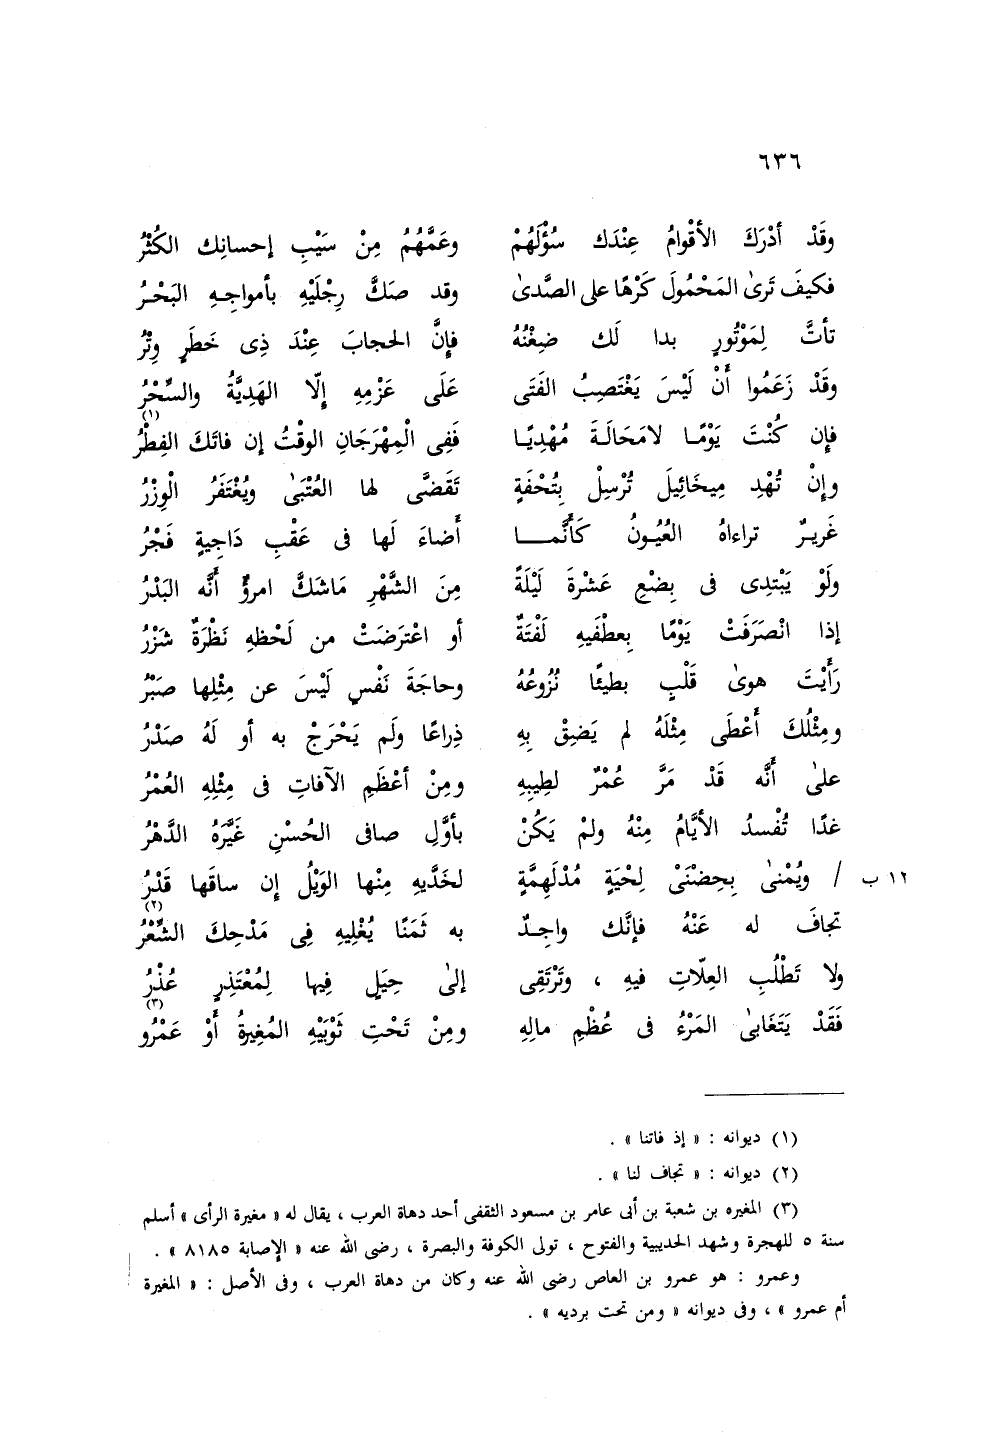 ٦٣٦
وقَدْ أدْرَكَ الأقْوامُ عِنْدَك سُؤْلَهُمْ وعَمَّهُمُ مِنْ سَيْبِ إحسانِك الكُثْرُ
فكيفَ تَرىٰ المَحْمُولَ كَرْهًا على الصَّدىٰ وقد صَكَّ رِجْلَيْهِ بأمواجِهِ البَحْرُ
تأتَّ لِمَوْتُورٍ بدا لَك ضِغْنُهُ فإنَّ الحجابَ عِنْدَ ذِى خَطَرٍ وِتْرُ
وقَدْ زَعَمُوا أَنْ لَيْسَ يَغْتَصِبُ الفَتَى عَلَى عَزْمِهِ إلّا الهَدِيَّةُ والسِّحْرُ
فإن كُنْتَ يَوْمًا لامَحَالَةَ مُهْدِيًا فَفِى الْمِهْرَجَانِ الوقْتُ إن فاتَكَ الفِطْرُ (١)
وإنْ تُهْدِ مِيخَائِيلَ تُرْسِلْ بِتُحْفَةٍ تَقَضَّى لها العُتْبَىٰ ويُغْتَفَرُ الْوِزْرُ
غَرِيرٌ تراءاهُ العُيُونُ كَأَنَّما أَضاءَ لَها فى عَقْبِ دَاجِيةٍ فَجْرُ
ولَوْ يَبْتدِى فى بِضْعِ عَشْرَةَ لَيْلَةً مِنَ الشَّهْرِ مَاشَكَّ امرؤٌ أنَّه البَدْرُ
إذا انْصَرَفَتْ يَوْمًا بِعطْفَيهِ لَفْتَةٌ أو اعْتَرَضَتْ من لَحْظهِ نَظْرَةٌ شَزْرُ
رَأَيْتَ هوىٰ قَلْبٍ بطيئًا نُزُوعُهُ وحاجَةَ نَفْسٍ لَيْسَ عن مِثْلِها صَبْرُ
ومِثْلُكَ أَعْطَى مِثْلَهُ لم يَضِقْ بِهِ ذِراعًا ولَم يَحْرَجْ به أو لَهُ صَدْرُ
علىٰ أَنَّه قَدْ مَرَّ عُمْرٌ لطِيبِهِ ومِنْ أعْظَمِ الآفاتِ فى مِثْلِهِ العُمْرُ
غدًا تُفْسدُ الأيَّامُ مِنْهُ ولمْ يَكُنْ بأوَّلِ صافى الحُسْنِ غَيَّرَهُ الدَّهْرُ
١٢ ب / ويُمْنىٰ بِحِضْنَىْ لِحْيَةٍ مُدْلَهِمَّةٍ لخدَّيهِ مِنْها الوَيْلُ إن ساقَها قَدْرُ
تجافَ له عَنْهُ فإنَّك واجِدٌ به ثَمَنًا يُغْلِيهِ فِى مَدْحِكَ الشِّعْرُ (٢)
ولا تَطْلُبِ العِلّاتِ فيهِ ، وتَرْتَقِى إلىٰ حِيَلٍ فِيها لِمُعْتَذِرٍ عُذْرُ
فَقَدْ يَتَغَابىٰ المَرْءُ فى عُظْمِ مالِهِ ومِنْ تَحْتِ ثَوْبَيْهِ المُغِيرةُ أَوْ عَمْرُو (٣)
(١) ديوانه : « إذ فاتنا » .
(٢) ديوانه : « تجاف لنا » .
(٣) المغيره بن شعبة بن أبى عامر بن مسعود الثقفى أحد دهاة العرب ، يقال له « مغيرة الرأى » أسلم
سنة ٥ للهجرة وشهد الحديبية والفتوح ، تولى الكوفة والبصرة ، رضى الله عنه « الإصابة ٨١٨٥ » .
وعمرو : هو عمرو بن العاص رضى الله عنه وكان من دهاة العرب ، وفى الأصل : « المغيرة
أم عمرو » ، وفى ديوانه « ومن تحت برديه » .